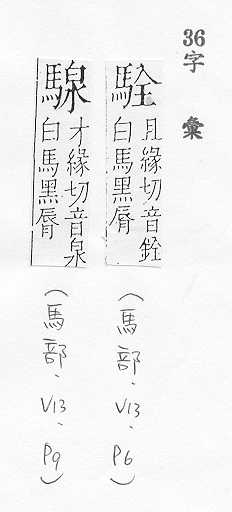 36
字彙
駩
且緣切音銓
白馬黑脣
(馬部、V13、P6)
騡
才緣切音泉
白馬黑脣
(馬部、V13、P9)